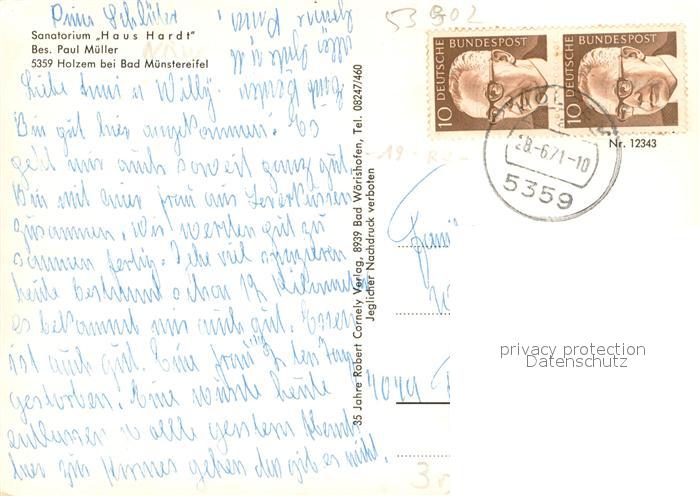 Sanatorium „Haus Hardt"
Bes. Paul Müller
5359 Holzem bei Bad Münstereifel
Liebe u Willy.
Bin gut hier angekommen. Es
geht mir auch soweit ganz gut.
Bin mit einer Frau aus Leverkusen
zusammen. Wir werden gut zu
sammen fertig. Gehe viel spazieren
heute bestimmt schon 12 Kilometer
es bekommt mir auch gut. Essen
ist auch gut. Eine Frau in den
gestorben. Eine wurde heute
entlassen wollte gestern Abend
hier zur gehen das gibt es nicht.
35 Jahre Robert Cornely Verlag, 8939 Bad Wörishofen, Tel. 08247/460
Jeglicher Nachdruck verboten
53902
DEUTSCHE BUNDESPOST
10
DEUTSCHE BUNDESPOST
10
28.-6.71-10
5359
Nr. 12343
4049
privacy protection
Datenschutz